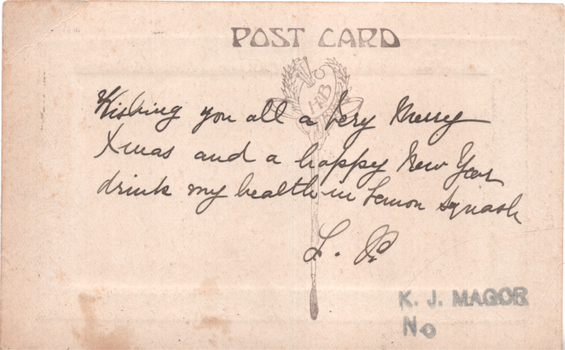 POST CARD
HBB
Wishing you all a Very Merry
Xmas and a happy New Year
drink my health in Lemon Squash
L. P.
K. J. MAGOR
No